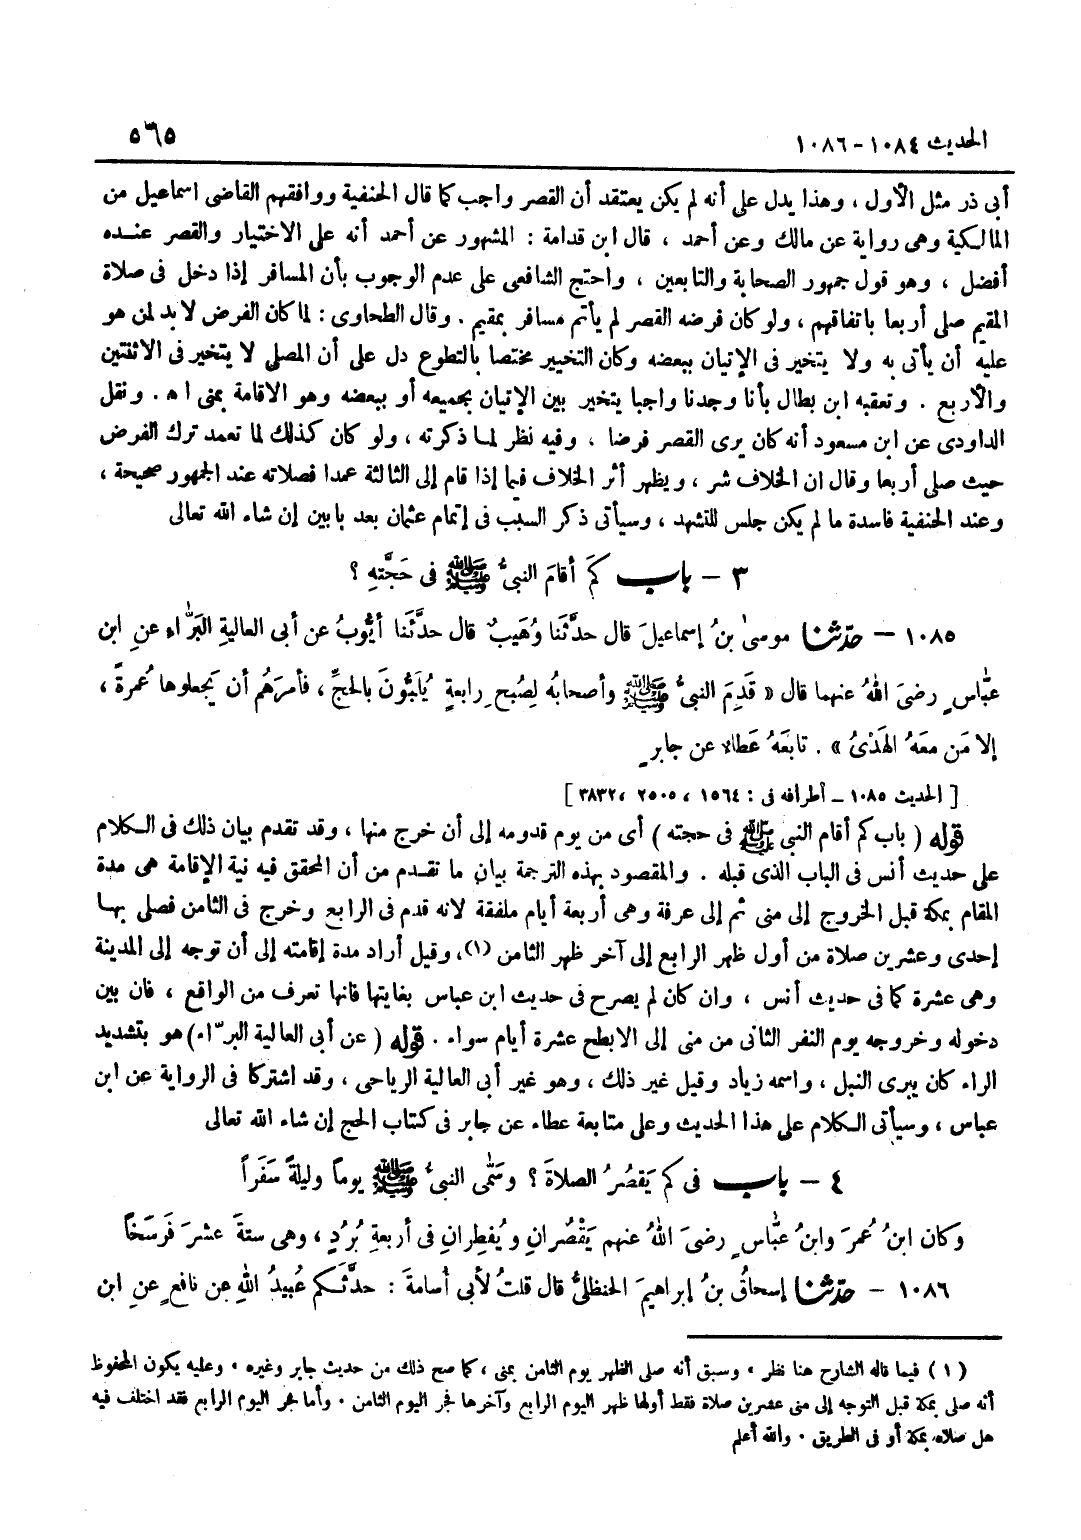 الحديث ١٠٨٤ - ١٠٨٦ ٥٦٥
أبى ذر مثل الأول ، وهذا يدل على أنه لم يكن يعتقد أن القصر واجب كما قال الحنفية ووافقهم القاضى اسماعيل من
المالكية وهى رواية عن مالك وعن أحمد ، قال ابن قدامة : المشهور عن أحمد أنه على الاختيار والقصر عنده
أفضل ، وهو قول جمهور الصحابة والتابعين ، واحتج الشافعى على عدم الوجوب بأن المسافر إذا دخل فى صلاة
المقيم صلى أربعا باتفاقهم ، ولو كان فرضه القصر لم يأتم مسافر بمقيم . وقال الطحاوى : لما كان الفرض لابد لمن هو
عليه أن يأتى به ولا يتخير فى الإتيان ببعضه وكان التخيير مختصا بالتطوع دل على أن المصلى لا يتخير فى الاثنتين
والأربع . وتعقبه ابن بطال بأنا وجدنا واجبا يتخير بين الإتيان بجميعه أو ببعضه وهو الاقامة بمنى اه . ونقل
الداودى عن ابن مسعود أنه كان يرى القصر فرضا ، وفيه نظر لما ذكرته ، ولو كان كذلك لما تعمد ترك الفرض
حيث صلى أربعا وقال ان الخلاف شر ، ويظهر أثر الخلاف فيما إذا قام إلى الثالثة عمدا فصلاته عند الجمهور صحيحة ،
وعند الحنفية فاسدة ما لم يكن جلس للتشهد ، وسيأتى ذكر السبب فى إتمام عثمان بعد بابين إن شاء الله تعالى
٣ - باب كَم أقامَ النبىُّ ﷺ فى حَجَّتهِ ؟
١٠٨٥ - حدّثنا موسىٰ بنُ إسماعيلَ قال حدَّثَنا وُهَيبٌ قال حدَّثَنا أيُّوبُ عن أبى العاليةِ البَرَّاءِ عنِ ابنِ
عبَّاسٍ رضىَ اللهُ عنهما قال « قَدِمَ النبىُّ ﷺ وأصحابُه لِصُبحِ رابعةٍ يُلَبُّونَ بالحجِّ ، فأمرَهُم أن يَجعلوها عُمرةً ،
إلا مَن معَهُ الهَدْىُ » . تابعَهُ عَطاء عن جابرٍ
[ الحديث ١٠٨٥ ـ أطرافه فى : ١٥٦٤ ، ٢٥٠٥ ، ٣٨٣٢ ]
قوله ( باب كم أقام النبى ﷺ فى حجته ) أى من يوم قدومه إلى أن خرج منها ، وقد تقدم بيان ذلك فى الكلام
على حديث أنس فى الباب الذى قبله . والمقصود بهذه الترجمة بيان ما تقدم من أن المحقق فيه نية الإقامة هى مدة
المقام بمكة قبل الخروج إلى منى ثم إلى عرفة وهى أربعة أيام ملفقة لانه قدم فى الرابع وخرج فى الثامن فصلى بها
إحدى وعشرين صلاة من أول ظهر الرابع إلى آخر ظهر الثامن (١)، وقيل أراد مدة إقامته إلى أن توجه إلى المدينة
وهى عشرة كما فى حديث أنس ، وان كان لم يصرح فى حديث ابن عباس بغايتها فانها تعرف من الواقع ، فان بين
دخوله وخروجه يوم النفر الثانى من منى إلى الابطح عشرة أيام سواء . قوله ( عن أبى العالية البرّاء ) هو بتشديد
الراء كان يبرى النبل ، واسمه زياد وقيل غير ذلك ، وهو غير أبى العالية الرياحى ، وقد اشتركا فى الرواية عن ابن
عباس ، وسيأتى الكلام على هذا الحديث وعلى متابعة عطاء عن جابر فى كتاب الحج إن شاء الله تعالى
٤ - باب فى كم يَقصُرُ الصلاةَ ؟ وسَمّى النبىُّ ﷺ يوماً وليلةً سَفَراً
وكان ابنُ عُمرَ وابنُ عبَّاسٍ رضىَ اللهُ عنهم يَقْصُرانِ ويُفطِرانِ فى أربعةِ بُرُدٍ ، وهى ستةَ عشرَ فَرسَخاً
١٠٨٦ - حدّثنا إسحاقُ بنُ إبراهيمَ الحنظلىُّ قال قلتُ لأبى أسامةَ : حدَّثَكم عُبيدُ اللهِ عن نافعٍ عنِ ابنِ
( ١ ) فيما قاله الشارح هنا نظر ، وسبق أنه صلى الظهر يوم الثامن بمنى ، كما صح ذلك من حديث جابر وغيره . وعليه يكون المحفوظ
أنه صلى بمكة قبل التوجه إلى منى عشرين صلاة فقط أولها ظهر اليوم الرابع وآخرها فجر اليوم الثامن . وأما فجر اليوم الرابع فقد اختلف فيه
هل صلاه بمكة أو فى الطريق . والله أعلم